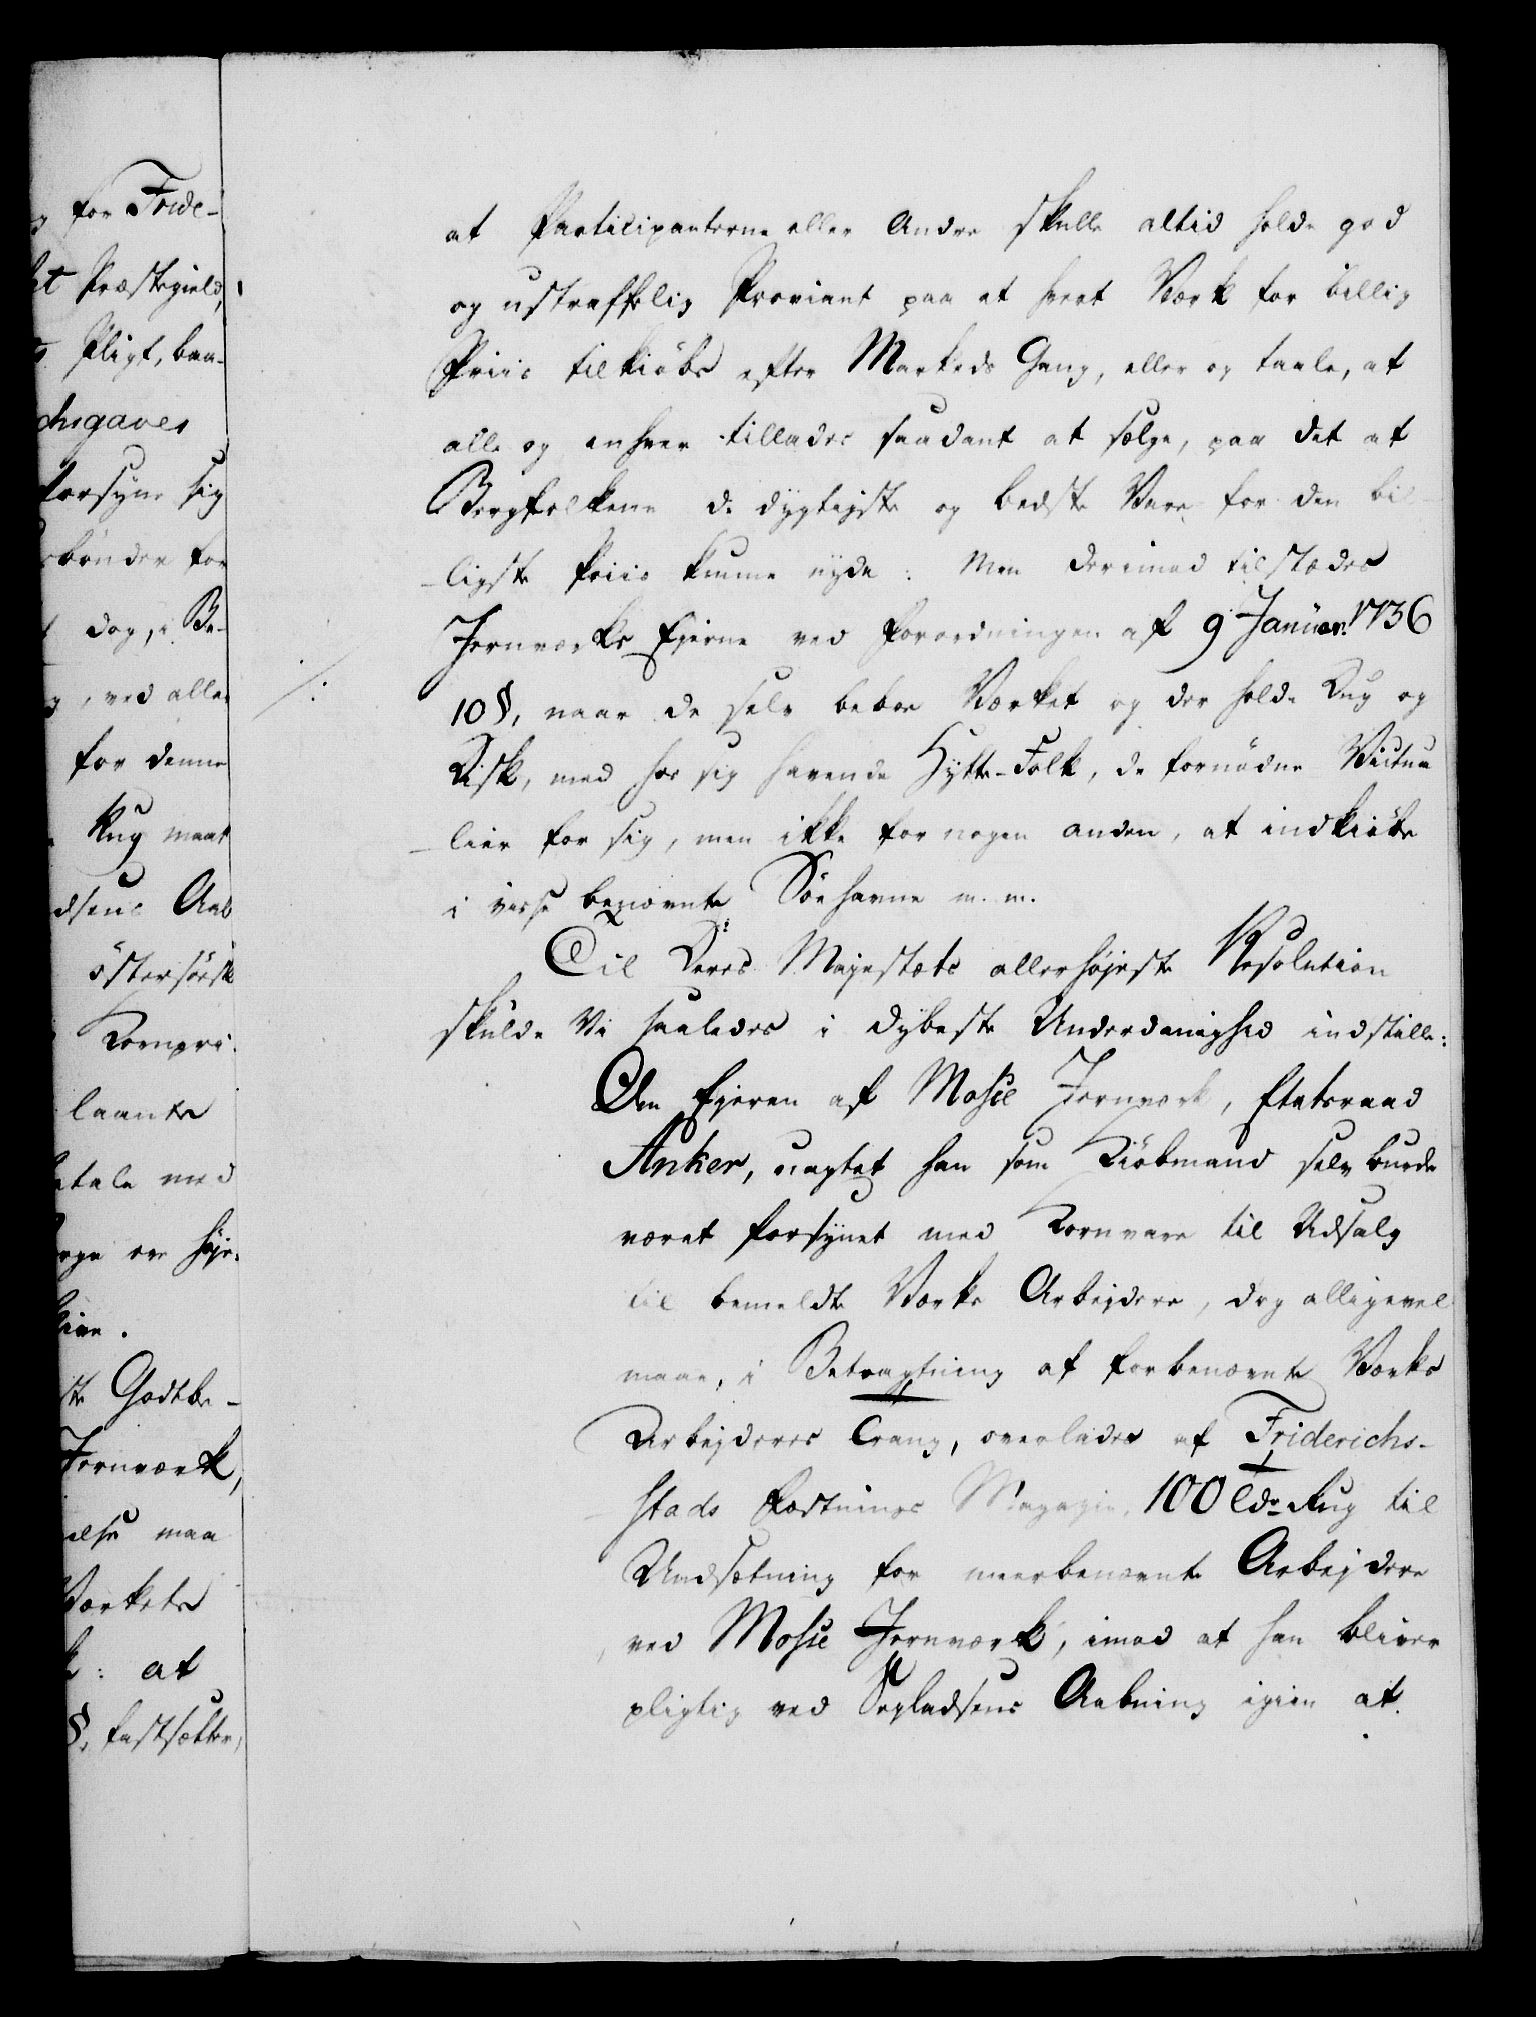 for Fride-
Præstegield,
Pligt, baa-
chsgaves
forsyne sig
bönder for
dog, i Be-
, ved aller
for denne
Rug maat
dsens Aab
östersöisk
Kornpri
laante
etale med
ste Godtbe-
Jernværk,
else maa
Værkets
: at
§. fastsætter,
at Participanterne eller Andre skulle altid holde god
og ustraffelig Proviant paa et hvert Værk for billig
Priis tilkiöbs efter Markeds Gang, eller og taale, at
alle og enhver tillades saadant at sælge, paa det at
Bergfolkene de dygtigste og bedste Vare for den bil-
-ligste Priis kunne nyde: Men derimod tilstædes
Jernværks Ejerne ved Forordningen af 9 Januar: 1736
10 §, naar de selv beboe Værket og der holde Dug og
Disk, med hos sig havende Hytte-Folk, de fornödne Victua
-lier for sig, men ikke for nogen anden, at indkiöbe
i visse benævnte Söehavne m. m.
Til Deres Majestæts allerhöjeste Resolution
skulde Vi saaledes i dybeste Underdanighed indstille:
Om Ejeren af Mosse Jernværk, Etatsraad
Anker, uagtet han som Kiöbmand selv burde
været forsynet med Kornvare til Udsalg
til bemeldte Værks Arbejdere, dog alligevel
maae, i Betragtning af forbenævnte Værks
Arbejderes Trang, overlades af Friderichs-
-stads Fæstnings Magazin, 100 Tdr Rug til
Undsætning for meerbenævnte Arbejdere
ved Mosse Jernværk, imod at han bliver
pligtig ved Sejladsens Aabning igien at